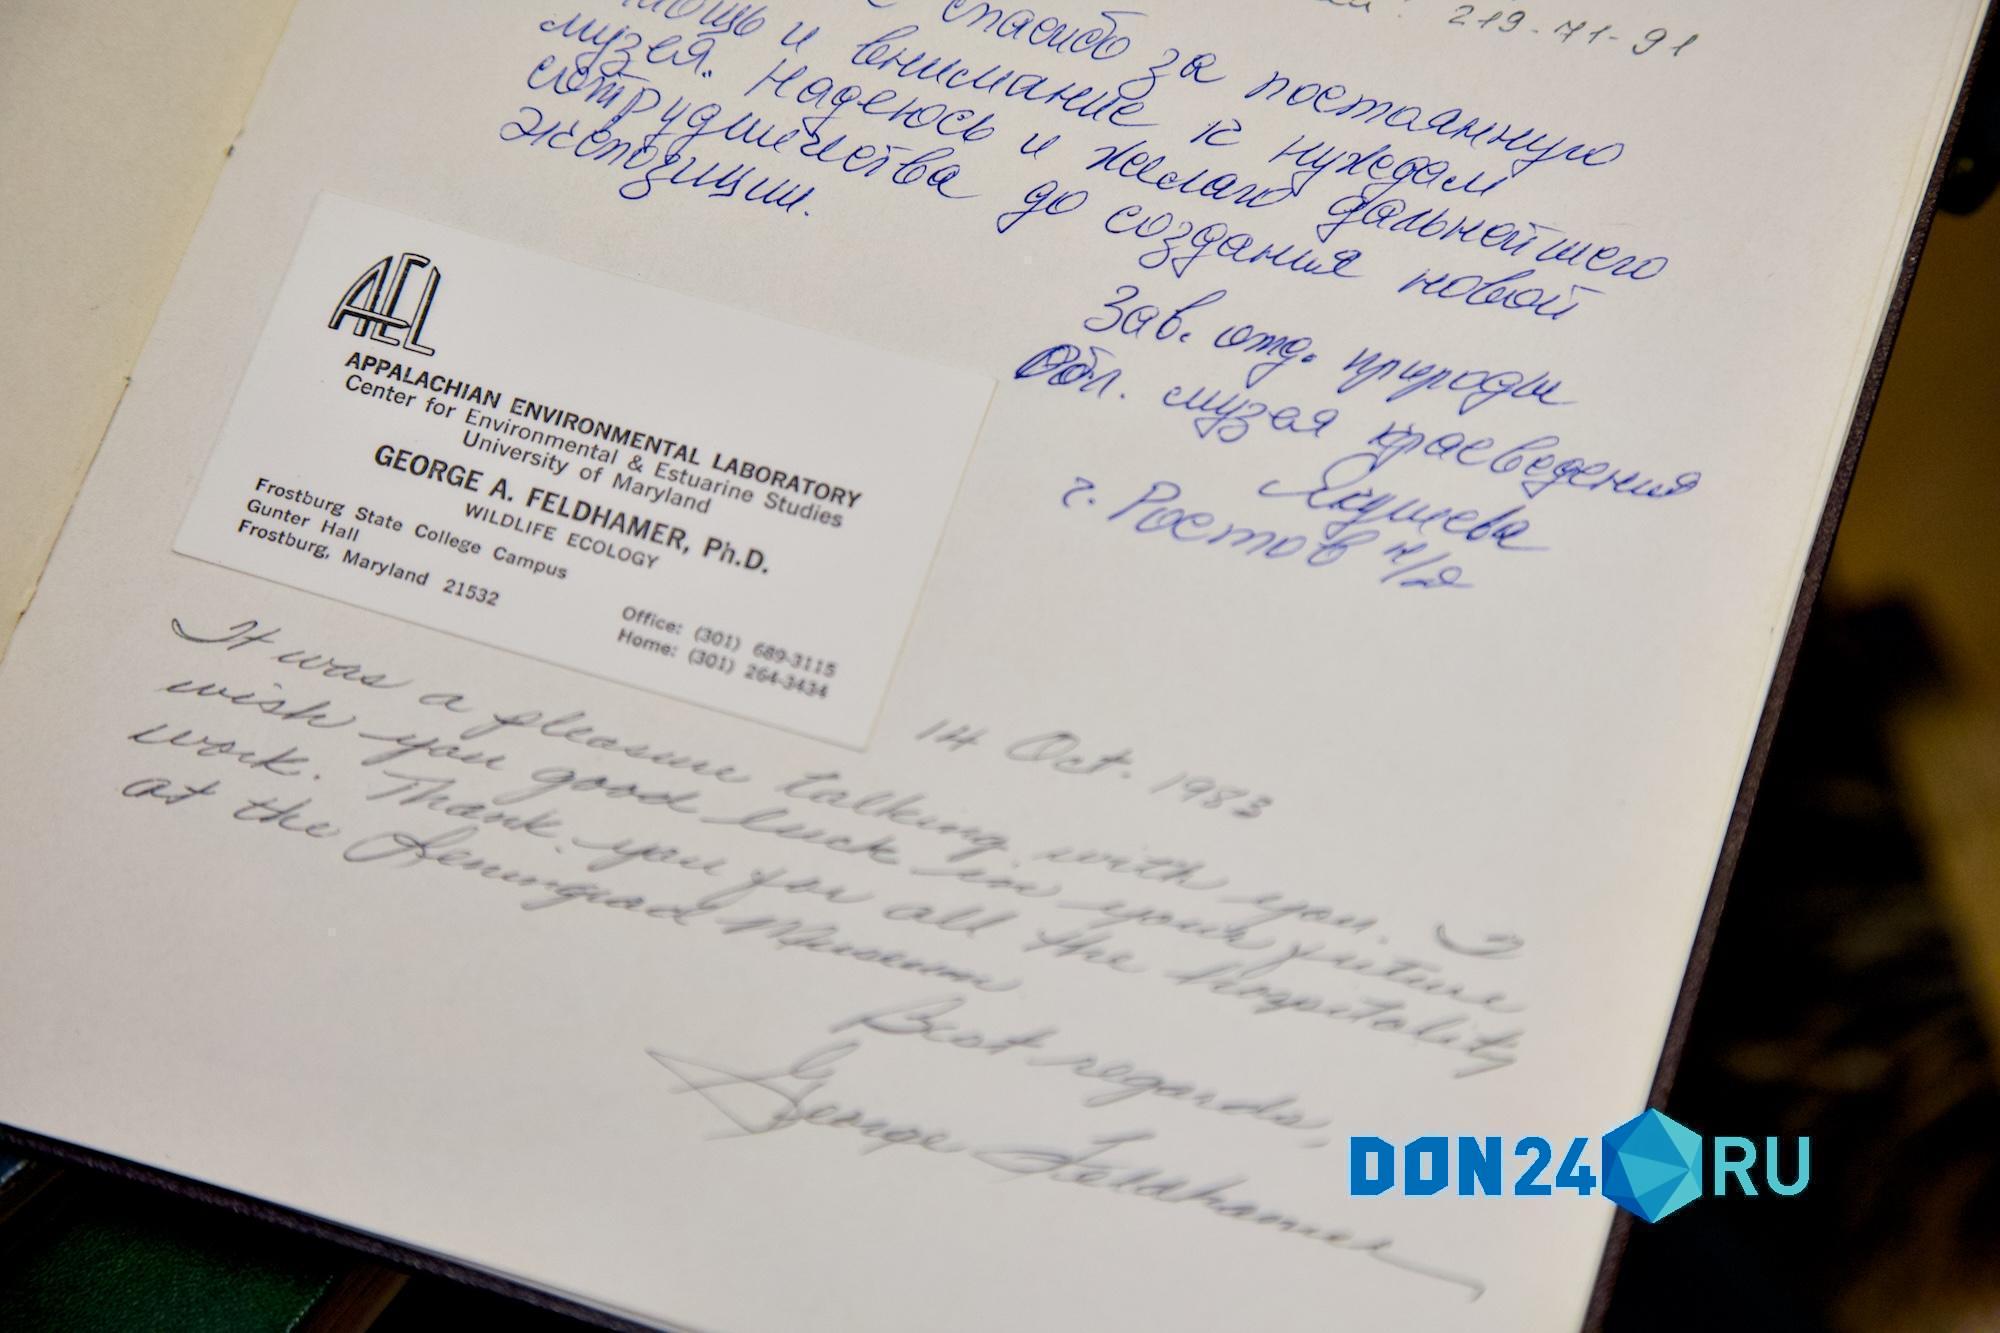 219-71-91
спасибо за постоянную
помощь и внимание к нуждам
музея. Надеюсь и желаю дальнейшего
сотрудничества до создания новой
экспозиции.
Зав. отд. природы
Обл. музея краеведения
Якушева
г. Ростов н/Д
AEL
APPALACHIAN ENVIRONMENTAL LABORATORY
Center for Environmental & Estuarine Studies
University of Maryland
GEORGE A. FELDHAMER, Ph.D.
WILDLIFE ECOLOGY
Frostburg State College Campus
Gunter Hall
Frostburg, Maryland 21532
Office: (301) 689-3115
Home: (301) 264-3434
14 Oct. 1983
It was a pleasure talking with you. I
wish you good luck in your future
work. Thank you for all the hospitality
at the Leningrad Museum
Best regards,
George Feldhamer
DON24 RU